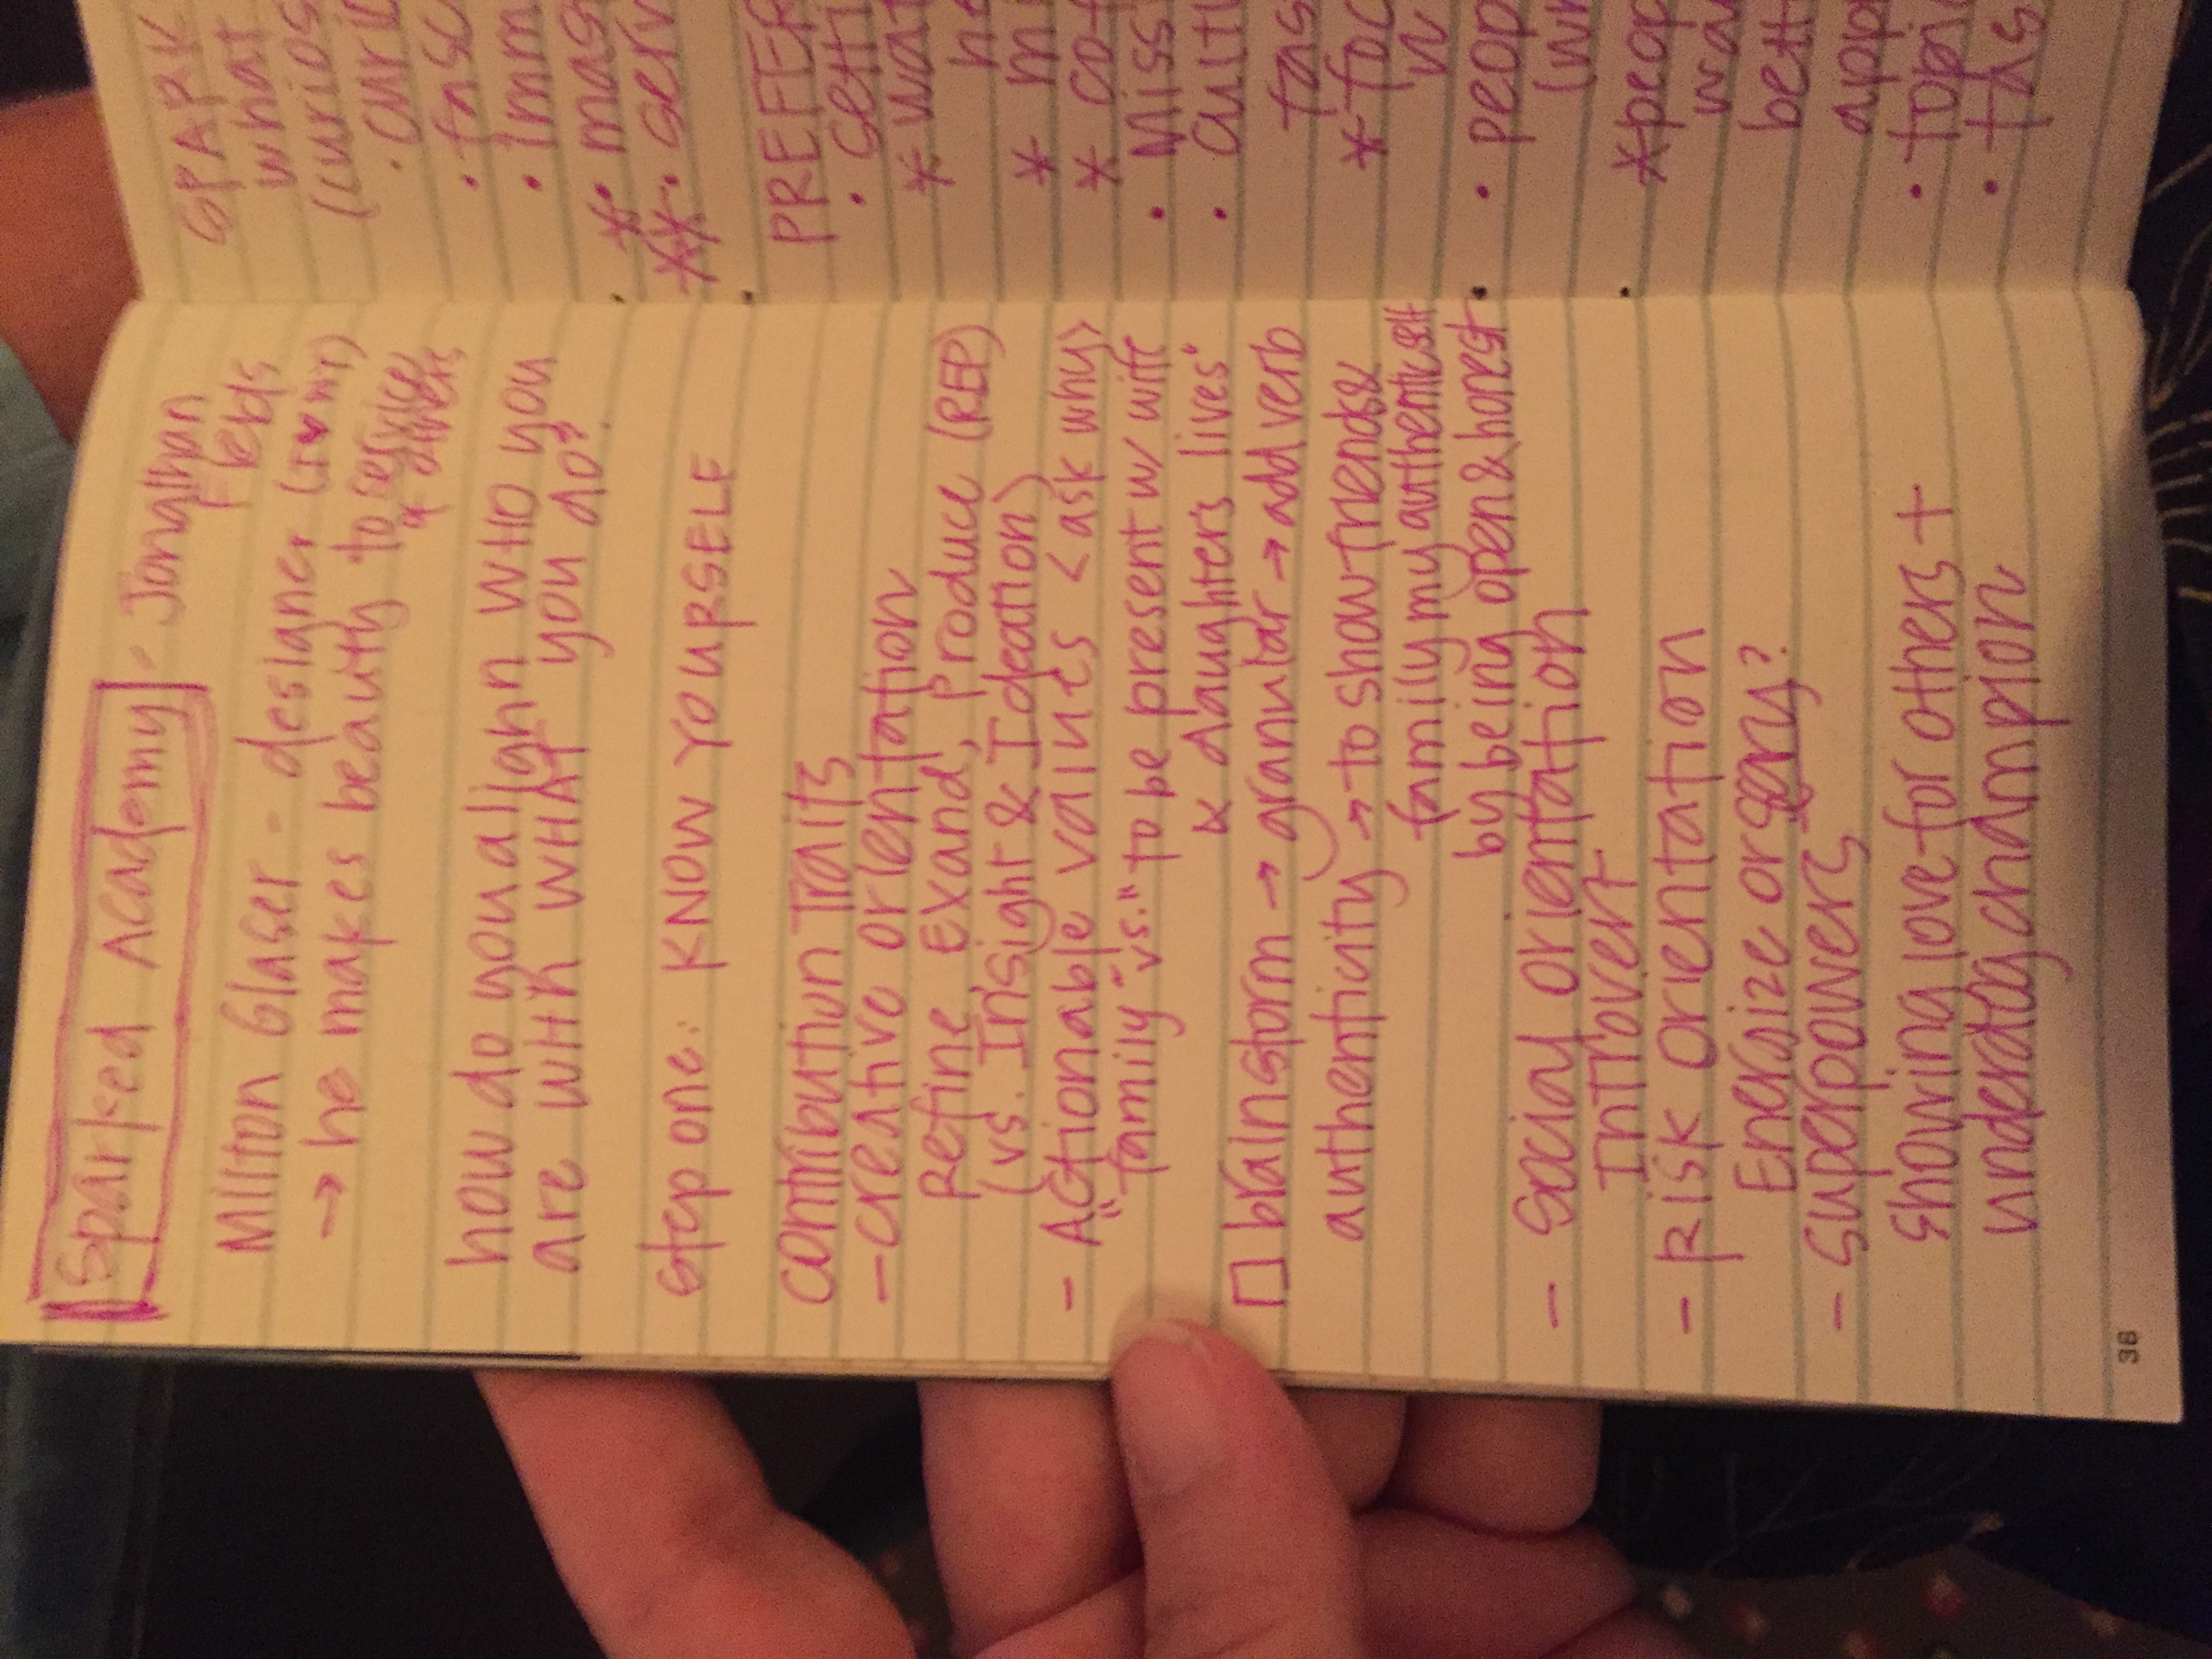 Sparked Academy - Jonathan
Fields
Milton Glaser - designer (I ♥ NY)
→ he makes beauty to service
of others
how do you alighn WHO you
are with WHAT you do?
step one: KNOW YOURSELF
contribution Traits
- creative orientation
Refine, Exand, Produce (REP)
(vs. Insight & Ideation)
- Actionable values <ask why>
"family" vs. "to be present w/ wife
& daughter's lives"
☐ brainstorm → granular → add verb
authenticity → to show friends &
family my authentic self
by being open & honest
- Social orientation
Introvert
- Risk orientation
Energize or scary?
- superpowers
showing love for others +
underdog champion
36
SPARK
what
(curios
• curio
• fasc
• imm
* • mas
** • serv
PREFER
• setti
* wat
he
* mi
* cof
• Miss
• cultu
tas
* foc
w
• peop
(wh
* peop
wa
bett
app
• topi
• tas